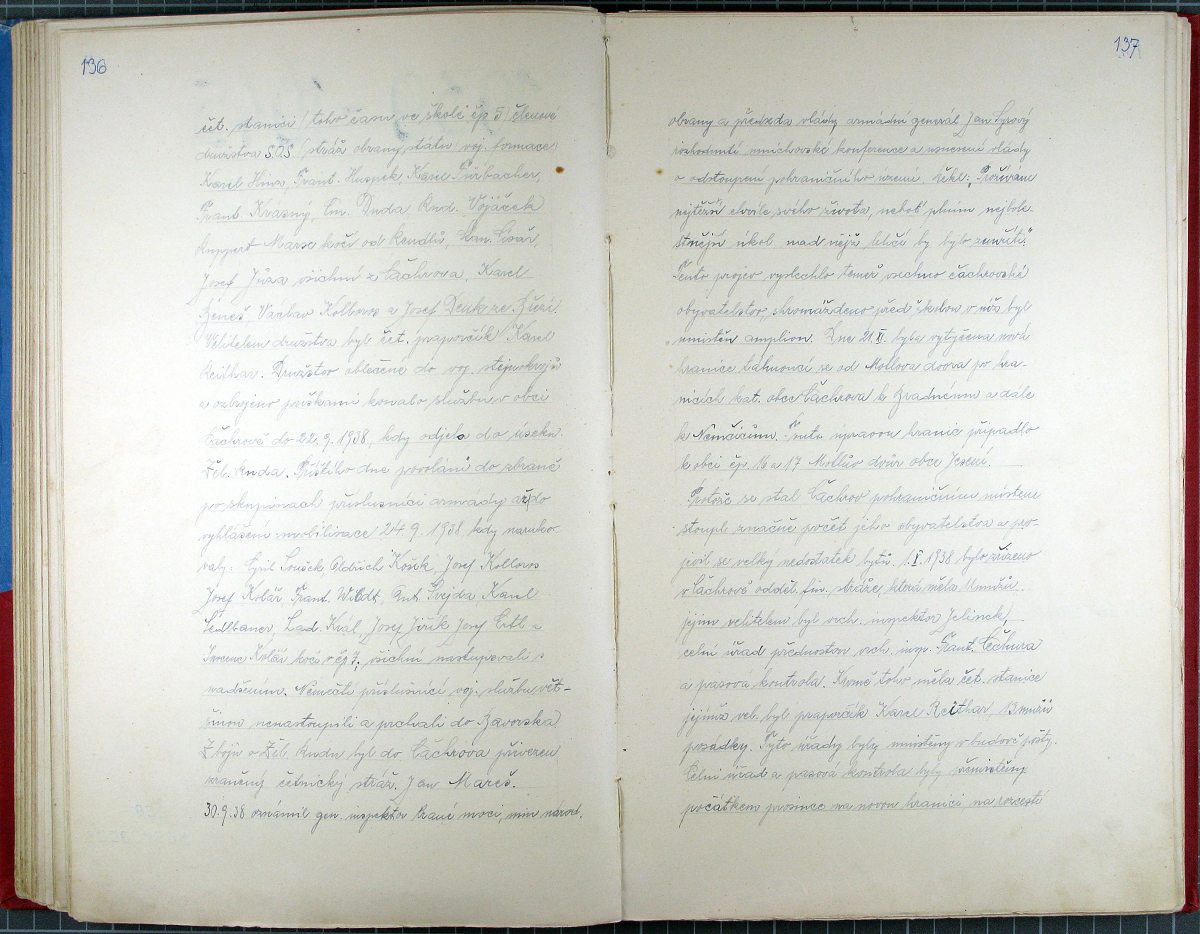 136
čet. stanici (toho času ve škole čp 5) členové
družstva SOS (stráž obrany státu) voj. formace
Karel Hinz, Frant. Huspek, Karel Fürbacher,
Frant. Krásný, Em. Duda Rud. Vojáček
Ruppert Marse kočí od Em. Císař,
Josef Jůza všichni z Čáchrova, Karel
Beneš, Václav Kolbovos a Josef Denk ze
Velitelem družstva byl čet. praporčík Karel
Reithar. Družstvo oblečené do voj. stejnokrojů
a ozbrojeno puškami konalo službu v obci
Čáchrově do 22. 9. 1938, kdy odjelo do úseku
Žel. Ruda. Příštího dne povoláni do zbraně
po skupinách příslušníci armády až do
vyhlášení mobilisace 24. 9. 1938, kdy naruko-
valy: Cyril Soušek Oldřich Košík, Josef Kollovos
Josef Kolář Frant. Wildt, Ant. Švejda, Karel
Sedlbauer, Lad. Král, Josef Jiřík Josef Litl a
Inocenc Kolář kočí v čp 7, všichni nastupovali s
nadšením. Němečtí příslušníci voj. službu vět-
šinou nenastoupili a prchali do Bavorska
Z bojů o Žel. Rudu byl do Čáchrova přivezen
raněný četnický stráž. Jan Mareš.
30. 9. 38 oznámil gen. inspektor branné moci, min národ.
137
obrany a předseda vlády armádní generál Jan Syrový
rozhodnutí mnichovské konference a usnesení vlády
o odstoupení pohraničního území. Řekl: „Prožívám
nejtěžší chvíle svého života, neboť plním nejbole-
stnější úkol nad nějž lehčí by bylo zemříti."
Tento projev vyslechlo téměř všechno čáchrovské
obyvatelstvo, shromážděno před školou v níž byl
umístěn amplion. Dne 21. X. byla vytýčena nová
hranice táhnoucí se od Mollova dvora po hra-
nicích kat. obce Čáchrova k Bradnému a dále
k Němčicům. Touto úpravou hranic připadlo
k obci čp. 16 a 17 Mollův dvůr obce Jesení.
Protože se stal Čáchrov pohraničním místem
stoupl značně počet jeho obyvatelstva a pro-
jevil se velký nedostatek bytů. 1. X. 1938 bylo zřízeno
v Čáchrově odděl. fin. stráže, která měla mužů.
jejím velitelem byl vrch. inspektor Jelinek,
celní úřad přednostou vrch. insp. Frant. Čechura
a pasová kontrola. Kromě toho měla čet. stanice
jejímž vel. byl praporčík Karel Reithar 13 mužů
posádky. Tyto úřady byly umístěny v budově pošty.
Celní úřad a pasová kontrola byly přemístěny
počátkem prosince na novou hranici na rozcestí